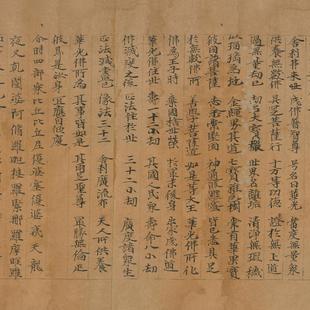 舍利弗來世 成佛普智尊 號名曰華光 當度無量眾
供養無數佛 具足菩薩行 十力等功德 證於無上道
過無量劫已 劫名大寶嚴 世界名離垢 清淨無瑕穢
以琉璃為地 金繩界其道 七寶雜色樹 常有華菓實
彼國諸菩薩 志念常堅固 神通波羅蜜 皆已悉具足
於無數佛所 善學菩薩道 如是等大士 華光佛所化
佛為王子時 棄國捨世榮 於最末後身 出家成佛道
華光佛住世 壽十二小劫 其國人民眾 壽命八小劫
佛滅度之後 正法住於世 三十二小劫 廣度諸眾生
正法滅盡已 像法三十二 舍利廣流布 天人普供養
華光佛所為 其事皆如是 其兩足聖尊 最勝無倫匹
彼即是汝身 宜應自欣慶
爾時四部眾比丘比丘尼優婆塞優婆夷天龍
夜叉乾闥婆阿修羅迦樓羅緊那羅摩睺羅